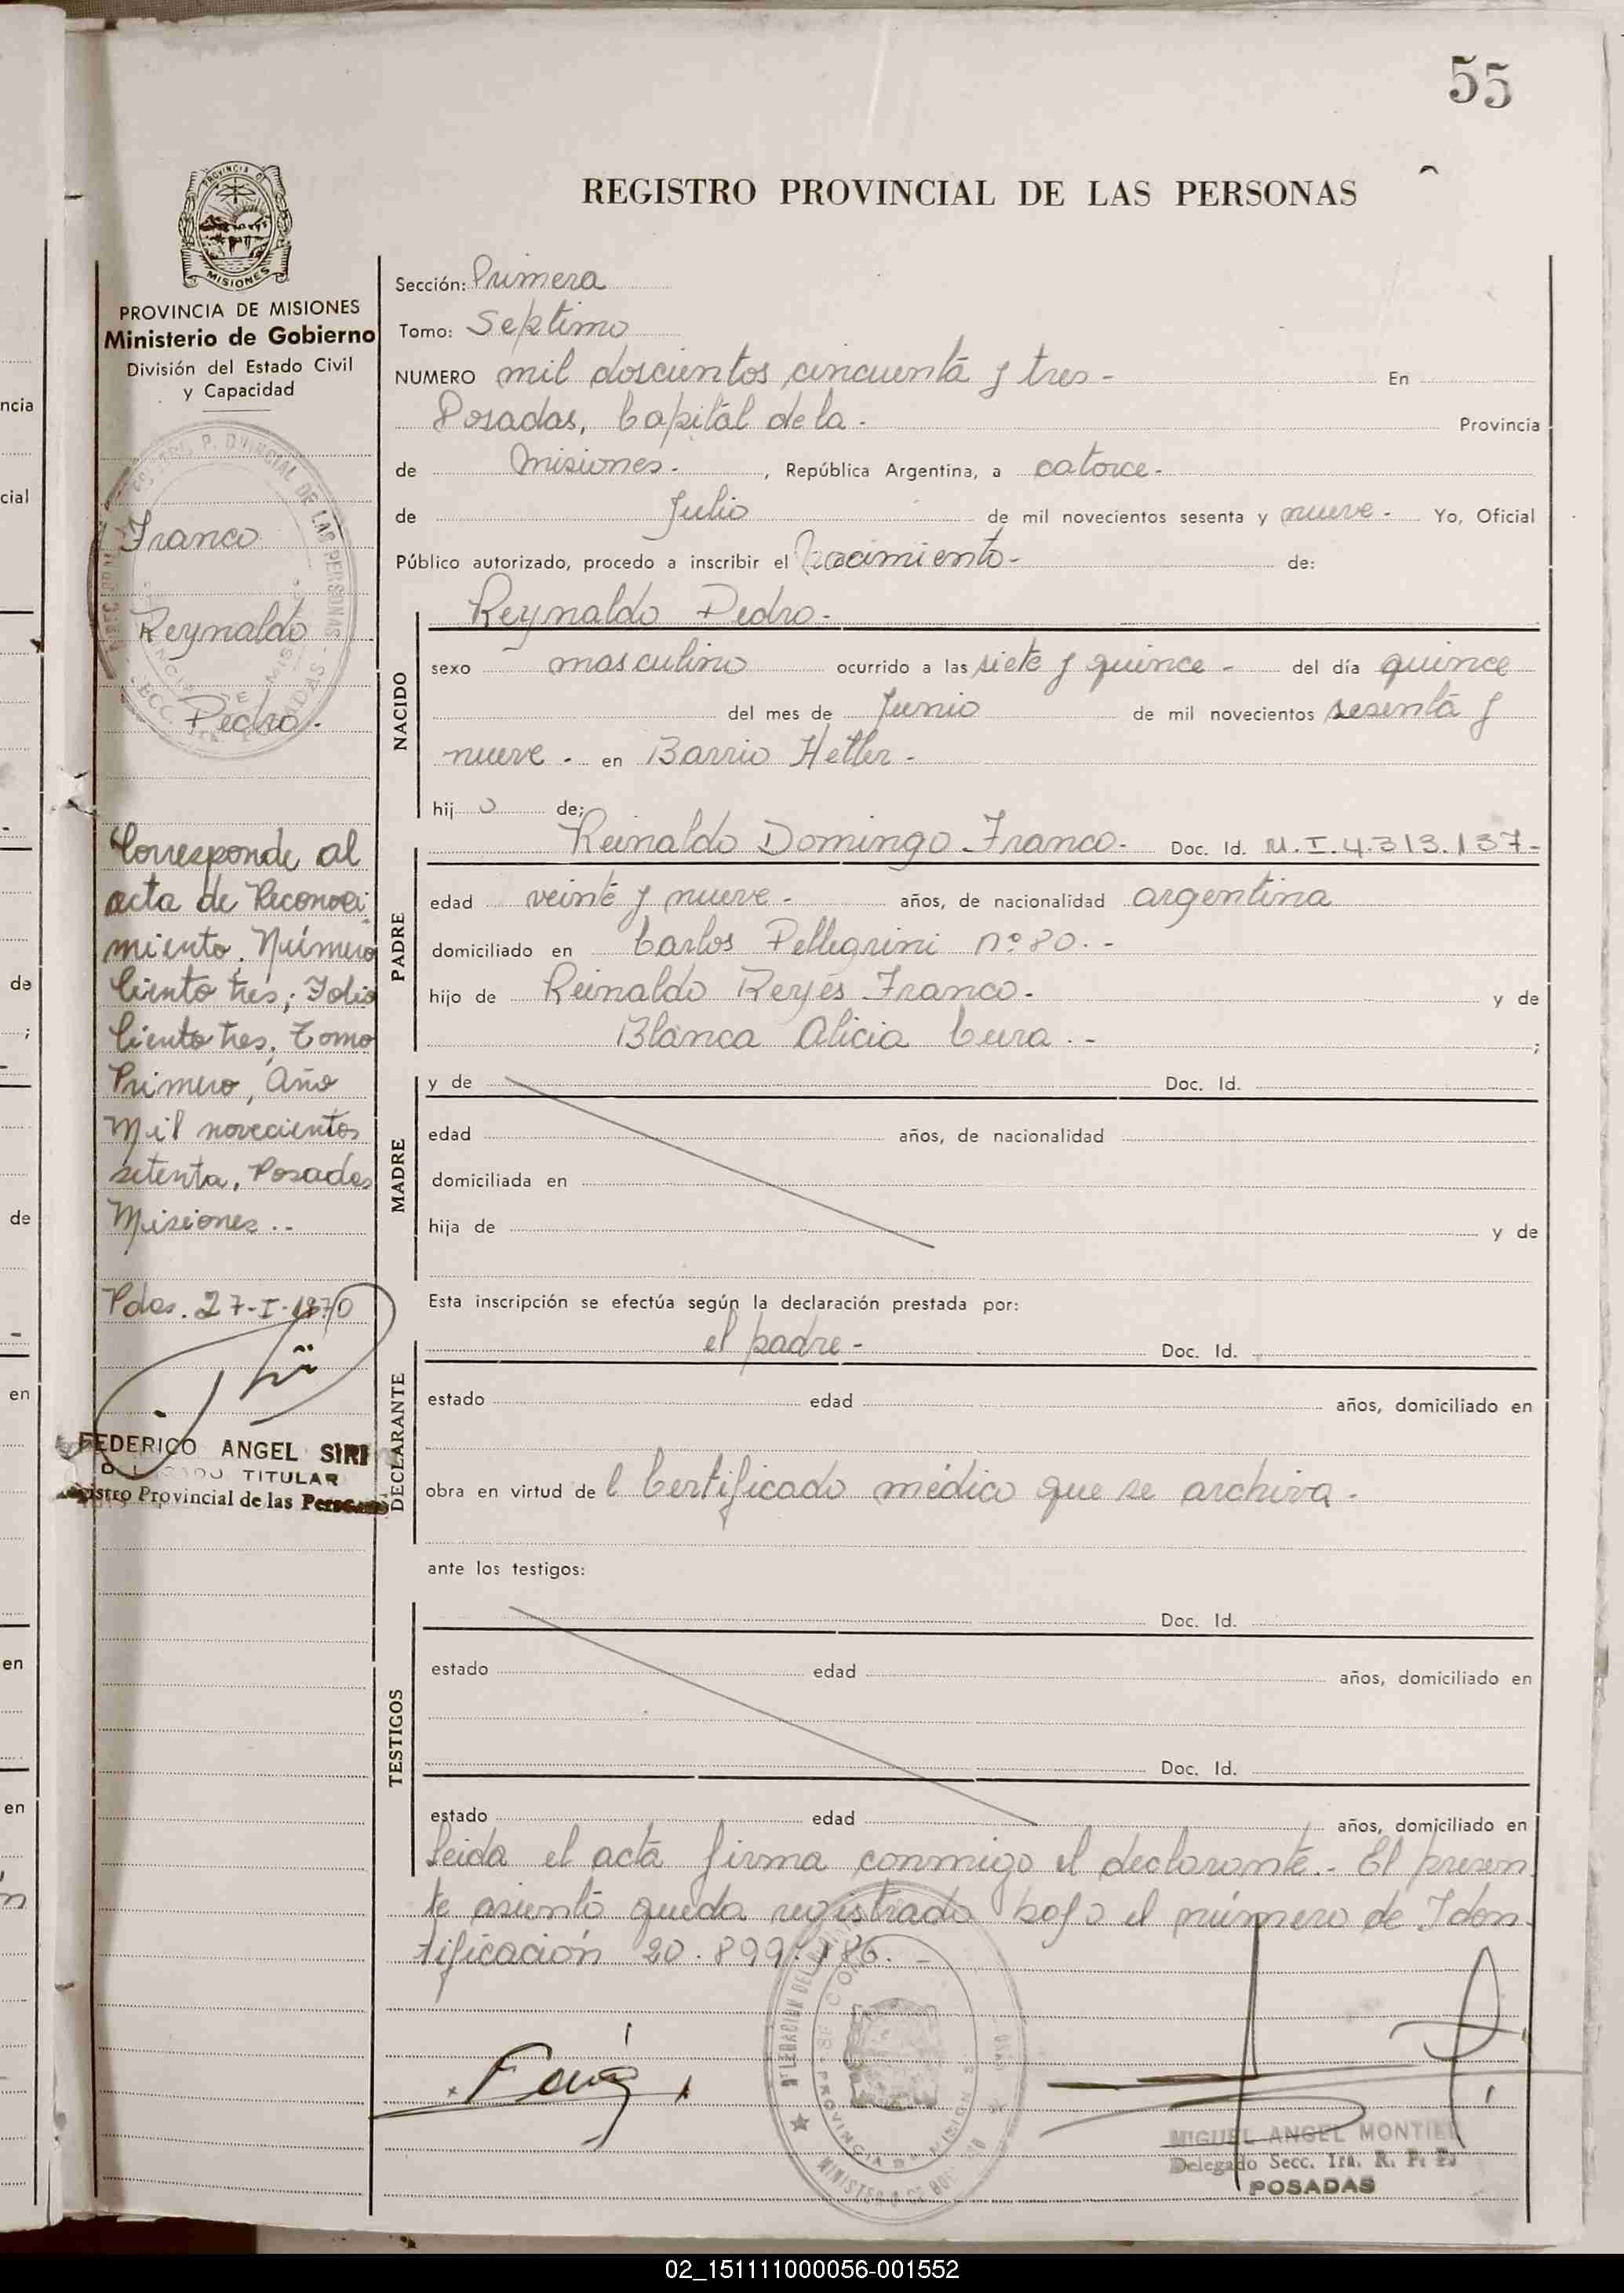 55
REGISTRO PROVINCIAL DE LAS PERSONAS
PROVINCIA DE MISIONES
Ministerio de Gobierno
División del Estado Civil
y Capacidad
Franco
Reynaldo
Pedro.-
Corresponde al
acta de Reconoci-
miento. Número
Ciento tres; Folio
Ciento tres, Tomo
Primero, Año
Mil novecientos
setenta, Posadas
Misiones..-
Pdas. 27-I-1970
FEDERICO ANGEL SIRI
TITULAR
Registro Provincial de las Personas
Sección: Primera
Tomo: Septimo
NUMERO mil doscientos cincuenta y tres- En
Posadas, Capital de la- Provincia
de Misiones-, República Argentina, a catorce-
de Julio de mil novecientos sesenta y nueve- Yo, Oficial
Público autorizado, procedo a inscribir el Nacimiento- de:
Reynaldo Pedro-
NACIDO
sexo masculino ocurrido a las siete y quince- del día quince
del mes de Junio de mil novecientos sesenta y
nueve- en Barrio Heller-
hij o de;
Reinaldo Domingo Franco- Doc. Id. M.I.4.313.137-
PADRE
edad veinte y nueve- años, de nacionalidad argentina
domiciliado en Carlos Pellegrini nº 80.-
hijo de Reinaldo Reyes Franco- y de
Blanca Alicia Cura.-;
MADRE
y de Doc. Id.
edad años, de nacionalidad
domiciliada en
hija de y de
Esta inscripción se efectúa según la declaración prestada por:
el padre- Doc. Id.
DECLARANTE
estado edad años, domiciliado en
obra en virtud de l Certificado médico que se archiva-
ante los testigos:
TESTIGOS
Doc. Id.
estado edad años, domiciliado en
Doc. Id.
estado edad años, domiciliado en
Leida el acta firma conmigo el declarante.- El presen
te asiento queda registrado bajo el número de Iden-
tificación 20.899.186.-
MIGUEL ANGEL MONTIEL
Delegado Secc. 1ra. R. P. P.
POSADAS
02_151111000056-001552